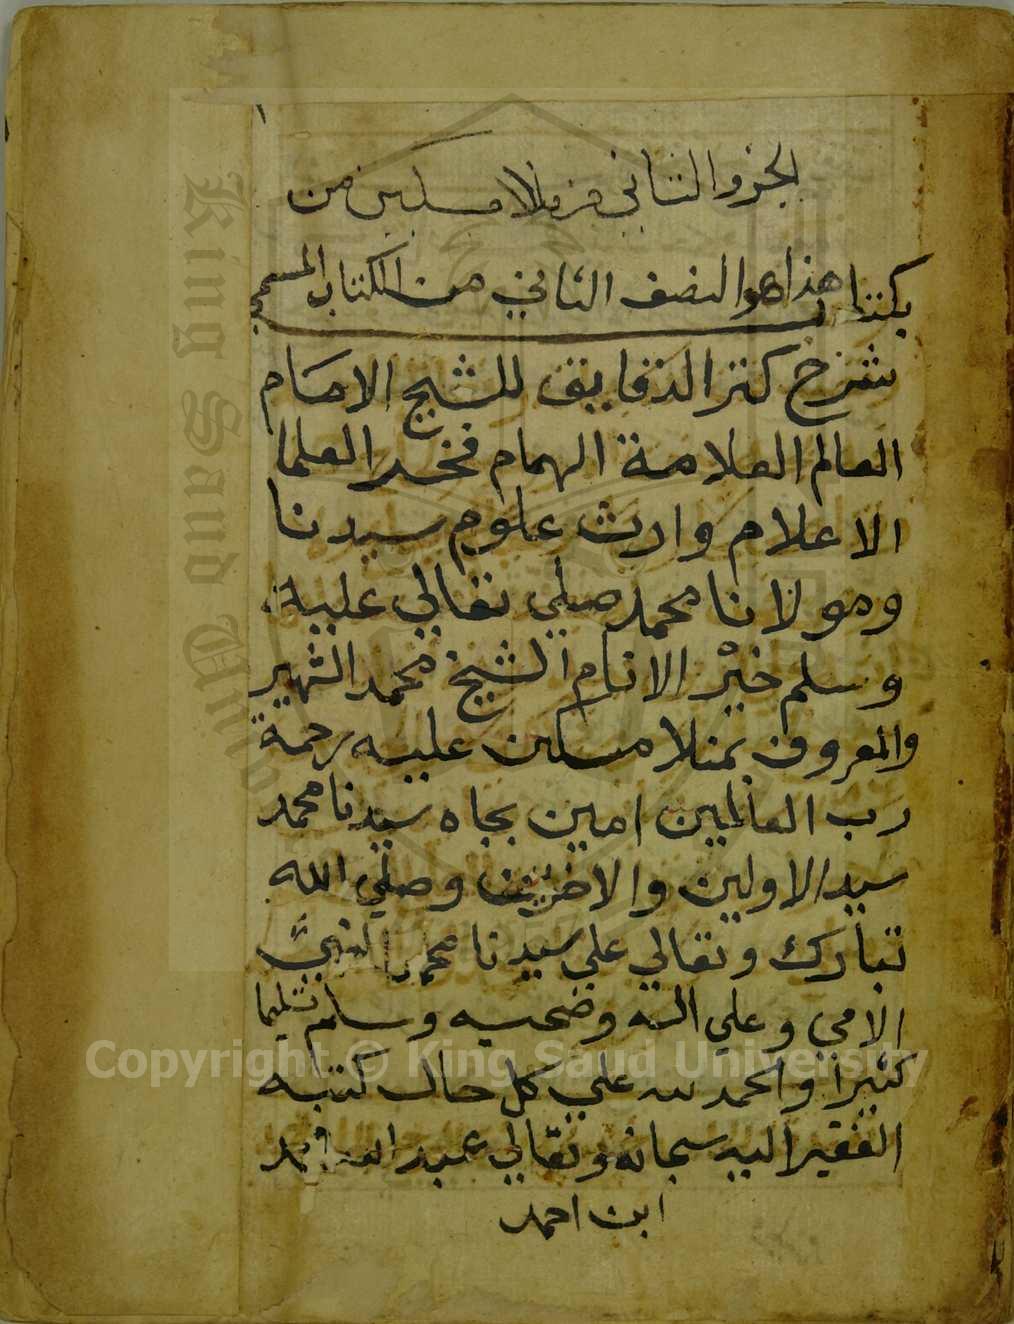 ١
الجزو الثاني من ملا مسكين من
هذا هو النصف الثاني من الكتاب المسمى
شرح كنز الدقايق للشيخ الامام
العالم العلامة الهمام فخر العلما
الاعلام وارث علوم سيدنا
ومولانا محمد صلي تعالي عليه
وسلم خير الانام الشيخ محمد الشهير
والمعروف بمنلا مسكين عليه رحمة
رب العالمين امين بجاه سيدنا محمد
سيد الاولين والاخرين وصلي الله
تبارك وتعالي علي سيدنا محمد النبي
الامي وعلي اله وصحبه وسلم تسليما
كثيرا والحمد لله علي كل حال كتبه
الفقير اليه سبحانه وتعالي عبد
ابن احمد
King Saud University
Copyright © King Saud University